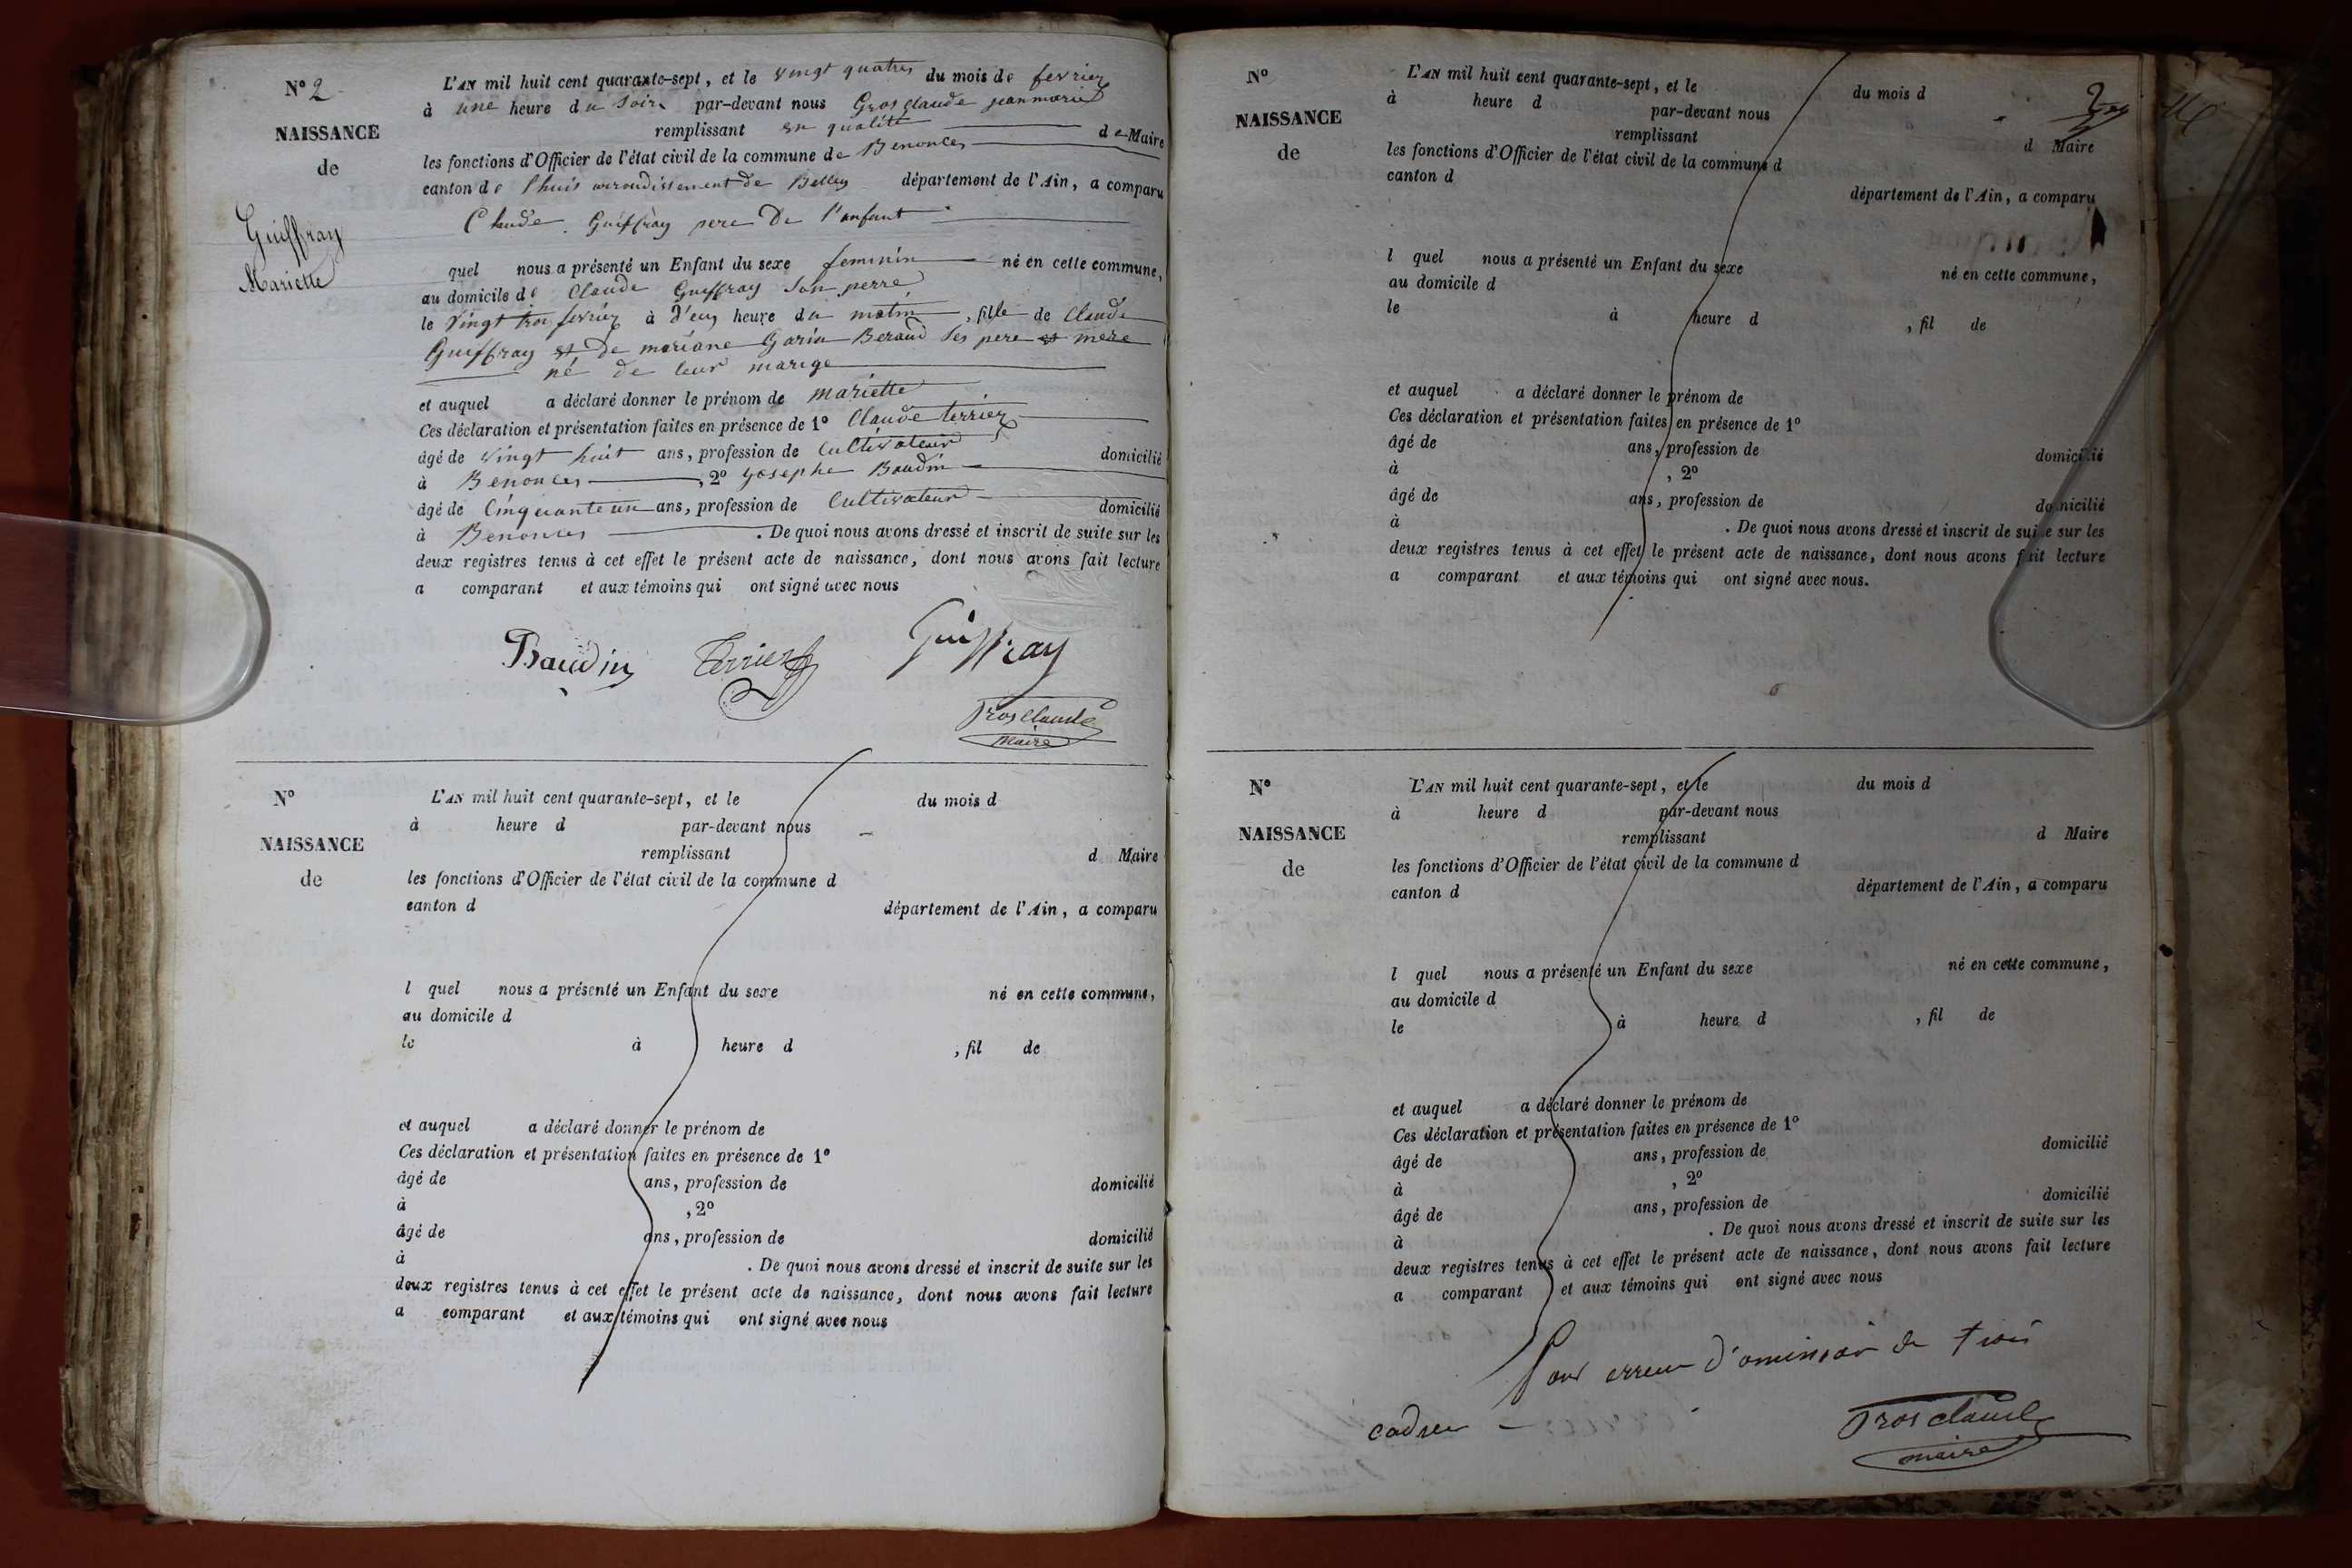 N° 2
NAISSANCE
de
Guiffray
Mariette
L'AN mil huit cent quarante-sept, et le vingt quatres du mois de fevrier
à une heure du soir par-devant nous Grosclaude jeanmarie
remplissant en qualité de Maire
les fonctions d'Officier de l'état civil de la commune de Benonces
canton de lhuis arrondissement de Belley département de l'Ain, a comparu
Claude Guiffray pere De l'anfant
quel nous a présenté un Enfant du sexe feminin né en cette commune,
au domicile de Claude Guiffray son perre
le vingt troi fevrier à d'eux heure du matin, fille de Claude
Guiffray et De mariane Garin Beraud ses pere et mere
né de leur marige
et auquel a déclaré donner le prénom de mariette
Ces déclaration et présentation faites en présence de 1° Claude terrier
âgé de vingt huit ans, profession de Cultivateur domicilié
à Benonces, 2° Josephe Baudin
âgé de Cinquante un ans, profession de Cultivateur domicilié
à Benonces. De quoi nous avons dressé et inscrit de suite sur les
deux registres tenus à cet effet le présent acte de naissance, dont nous avons fait lecture
a comparant et aux témoins qui ont signé avec nous
Baudin Terrier Guiffray
Grosclaude
maire
N°
NAISSANCE
de
L'AN mil huit cent quarante-sept, et le du mois d
à heure d par-devant nous
remplissant d Maire
les fonctions d'Officier de l'état civil de la commune d
canton d département de l'Ain, a comparu
l quel nous a présenté un Enfant du sexe né en cette commune,
au domicile d
le à heure d , fil de
et auquel a déclaré donner le prénom de
Ces déclaration et présentation faites en présence de 1°
âgé de ans, profession de domicilié
à , 2°
âgé de ans, profession de domicilié
à . De quoi nous avons dressé et inscrit de suite sur les
deux registres tenus à cet effet le présent acte de naissance, dont nous avons fait lecture
a comparant et aux témoins qui ont signé avec nous
N°
NAISSANCE
de
L'AN mil huit cent quarante-sept, et le du mois d
à heure d par-devant nous
remplissant d Maire
les fonctions d'Officier de l'état civil de la commune d
canton d département de l'Ain, a comparu
l quel nous a présenté un Enfant du sexe né en cette commune,
au domicile d
le à heure d , fil de
et auquel a déclaré donner le prénom de
Ces déclaration et présentation faites en présence de 1°
âgé de ans, profession de domicilié
à , 2°
âgé de ans, profession de domicilié
à . De quoi nous avons dressé et inscrit de suite sur les
deux registres tenus à cet effet le présent acte de naissance, dont nous avons fait lecture
a comparant et aux témoins qui ont signé avec nous.
N°
NAISSANCE
de
L'AN mil huit cent quarante-sept, et le du mois d
à heure d par-devant nous
remplissant d Maire
les fonctions d'Officier de l'état civil de la commune d
canton d département de l'Ain, a comparu
l quel nous a présenté un Enfant du sexe né en cette commune,
au domicile d
le à heure d , fil de
et auquel a déclaré donner le prénom de
Ces déclaration et présentation faites en présence de 1°
âgé de ans, profession de domicilié
à , 2°
âgé de ans, profession de domicilié
à . De quoi nous avons dressé et inscrit de suite sur les
deux registres tenus à cet effet le présent acte de naissance, dont nous avons fait lecture
a comparant et aux témoins qui ont signé avec nous
Pour erreur d'omission de trois
cadres
Grosclaude
maire